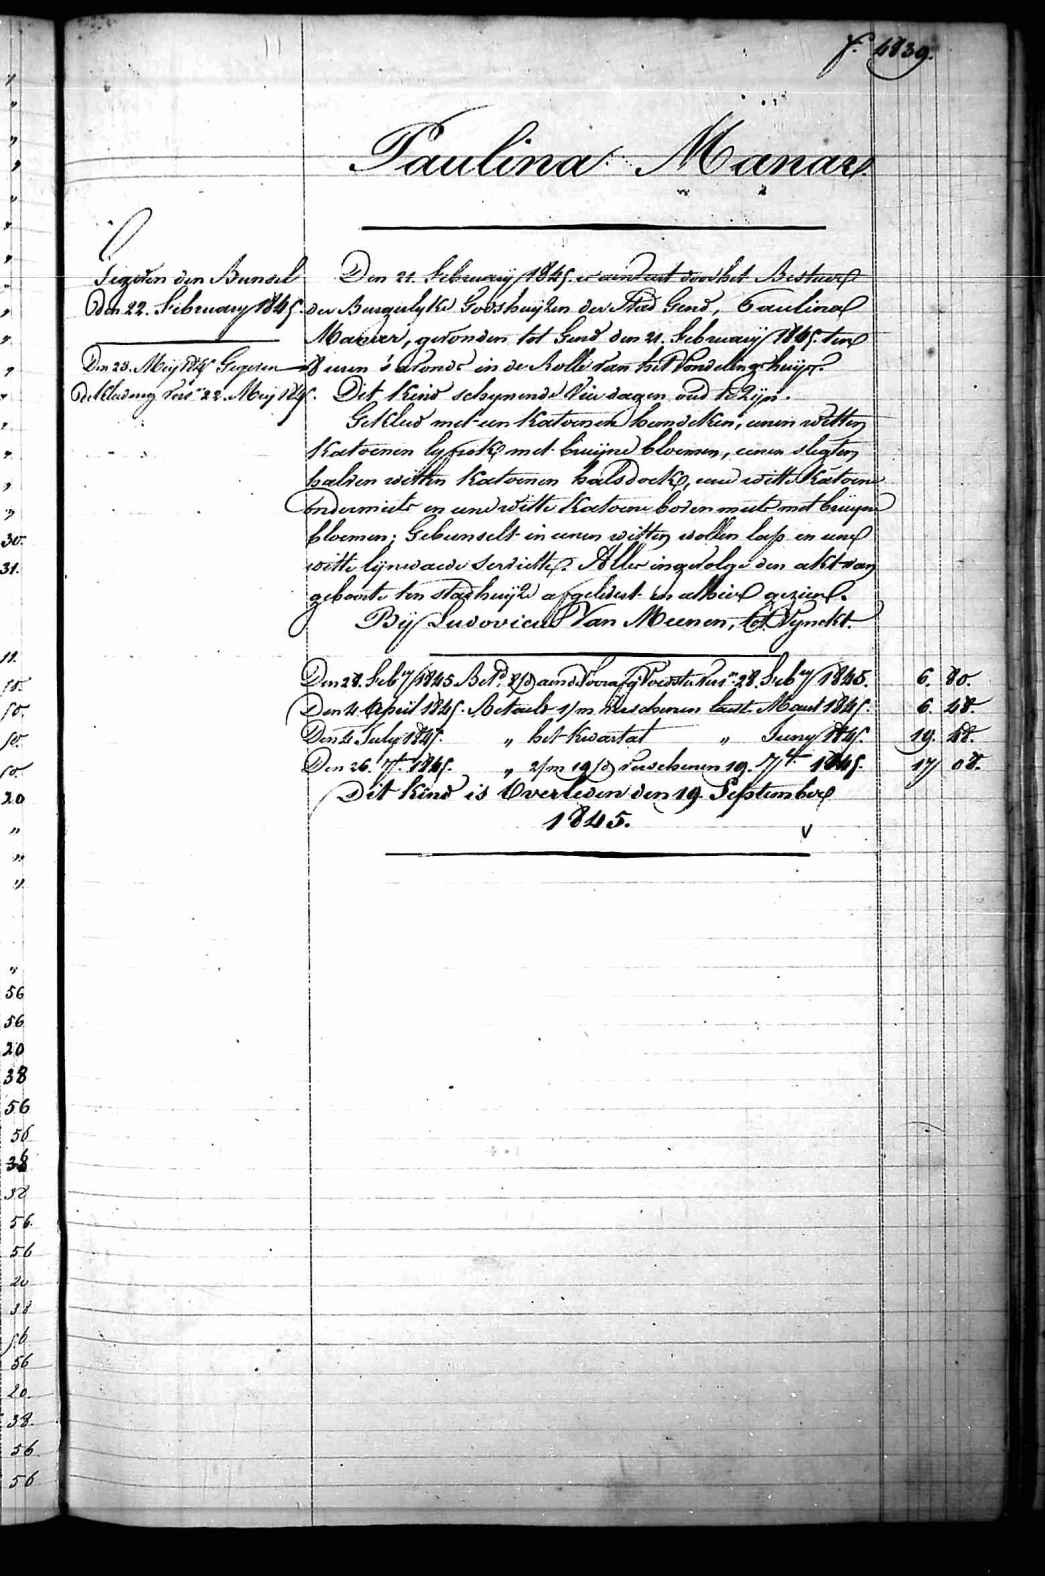 f. 4839.
Paulina Manar
Gegeven den Bunsel
Den 22. February 1845.
Den 23. Meij 1845 Gegeven
de kleeding vers.n 22. Meij 1845.
Den 21. February 1845. is aenveert door het Bestuur
der Burgerlyke Godshuijzen der Stad Gend, Paulina
Manar, gevonden tot Gend den 21. February 1845. ten
8 uren 's avonds in de Rolle van het Vondelinghuijs.
Dit Kind schynende Vier dagen oud te Zijn.
Gekleed met een Katoenen hemdeken, eenen witten
Katoenen lyfrok met bruijne bloemen, eenen slegten
halven witten Katoenen halsdoek, eene witte Katoene
ondermuts en eene Witte Katoene boven muts met bruijne
bloemen; Gebunselt in eenen witten wollen lap en eene
witte lynwaede serviette. Alles ingevolge den akt van
geboorte ten stadhuijze afgelevert en alhier gezien.
Bij Ludovicus Van Meenen, tot Vynckt.
Den 28. Feb.y 1845 Bet.d 8/d aen de Voorafg Voedster vers.n 28. Feb.y 1845. 6. 80.
Den 4 April 1845. Betaelt 1/m verschenen laest. Maart 1845. 6. 48.
Den 4 July 1845. " het kwartal " Juny 1845. 19. 48.
Den 26. 7.r 1845. " 2/m 19/d verschenen 19. 7.r 1845. 17 08.
Dit kind is Overleden den 19. September
1845.
30.
31.
11.
50.
50.
50.
50.
20
56
56
20
38
56
56
38
38
56.
56
20
38
56
56
20.
38.
56
56